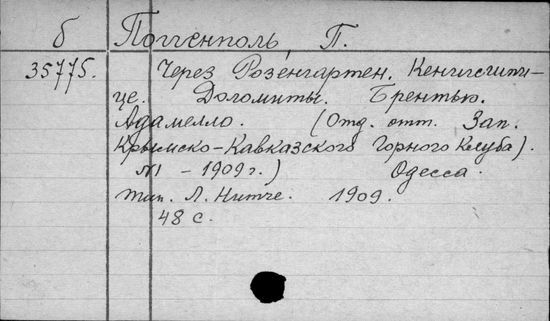 б Поггенполь, П.
35775. Через Розенгартен. Кенигсшпи-
це. Доломиты. Брентью.
Адамелло. (Отд. отт. Зап.
Крымско-Кавказского Горного Клуба).
№1 - 1909 г.) Одесса.
тип. Л. Нитче. 1909.
48 с.